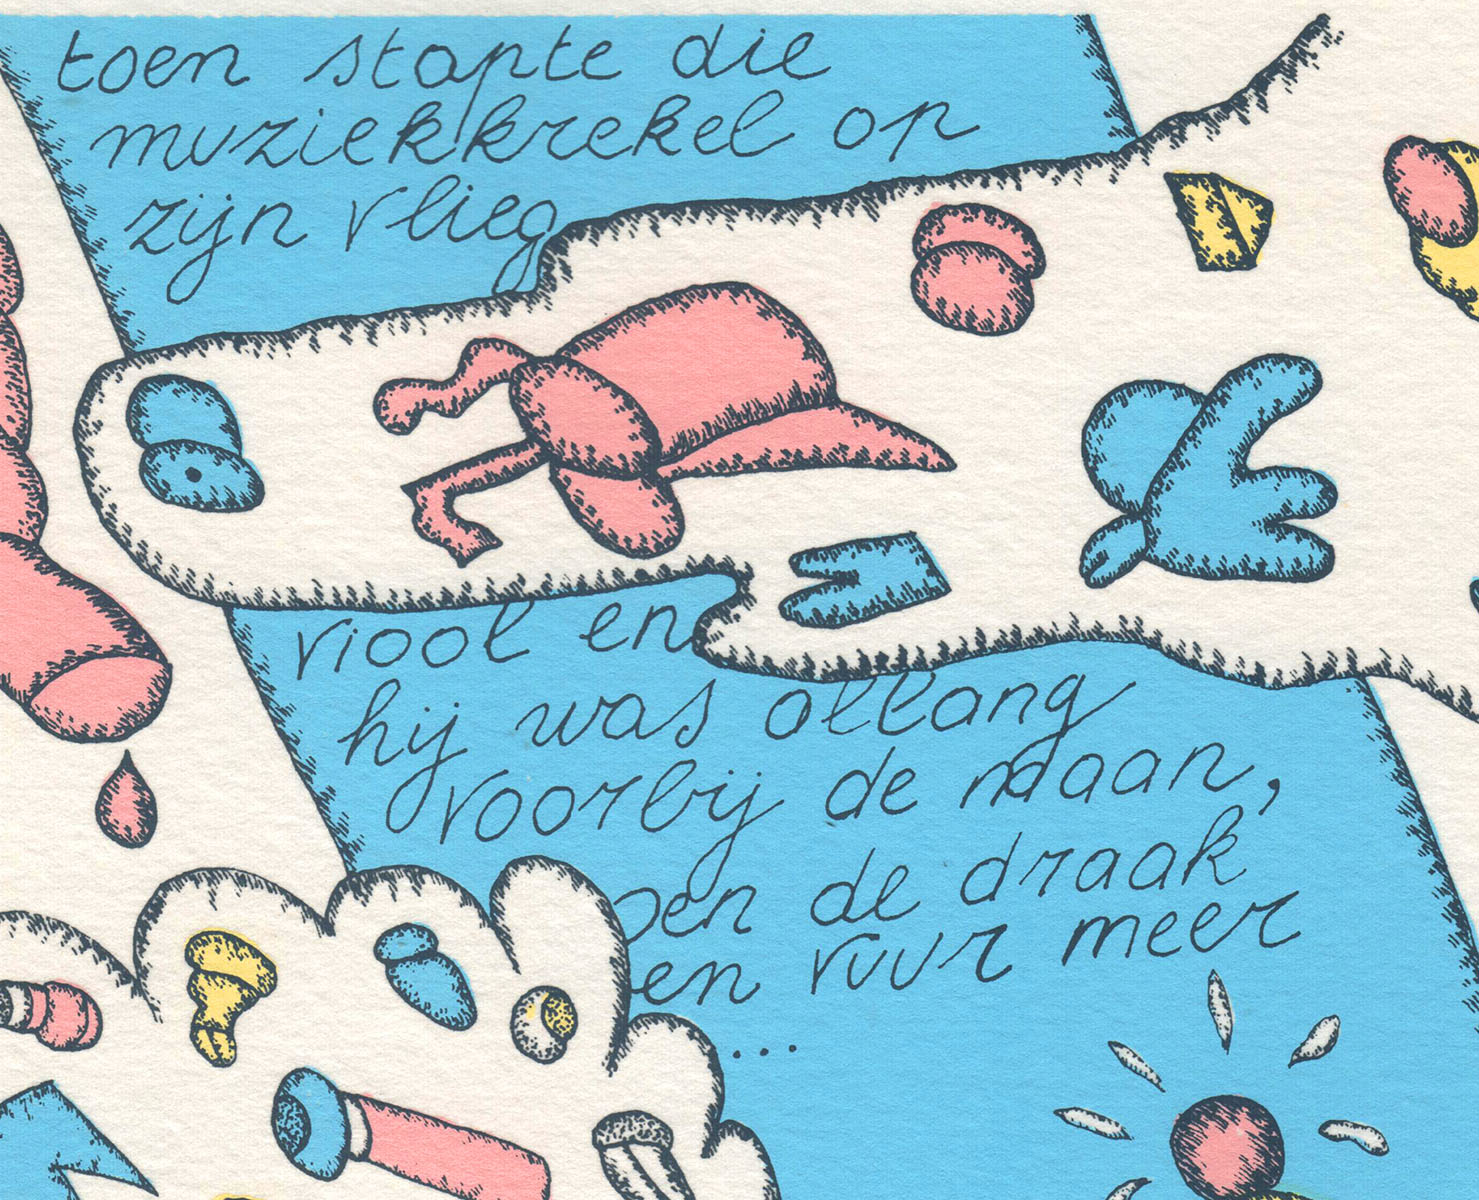 toen stapte die
muziekkrekel op
zijn vlieg
viool en
hij was allang
voorbij de maan,
oen de draak
een vuur meer
...